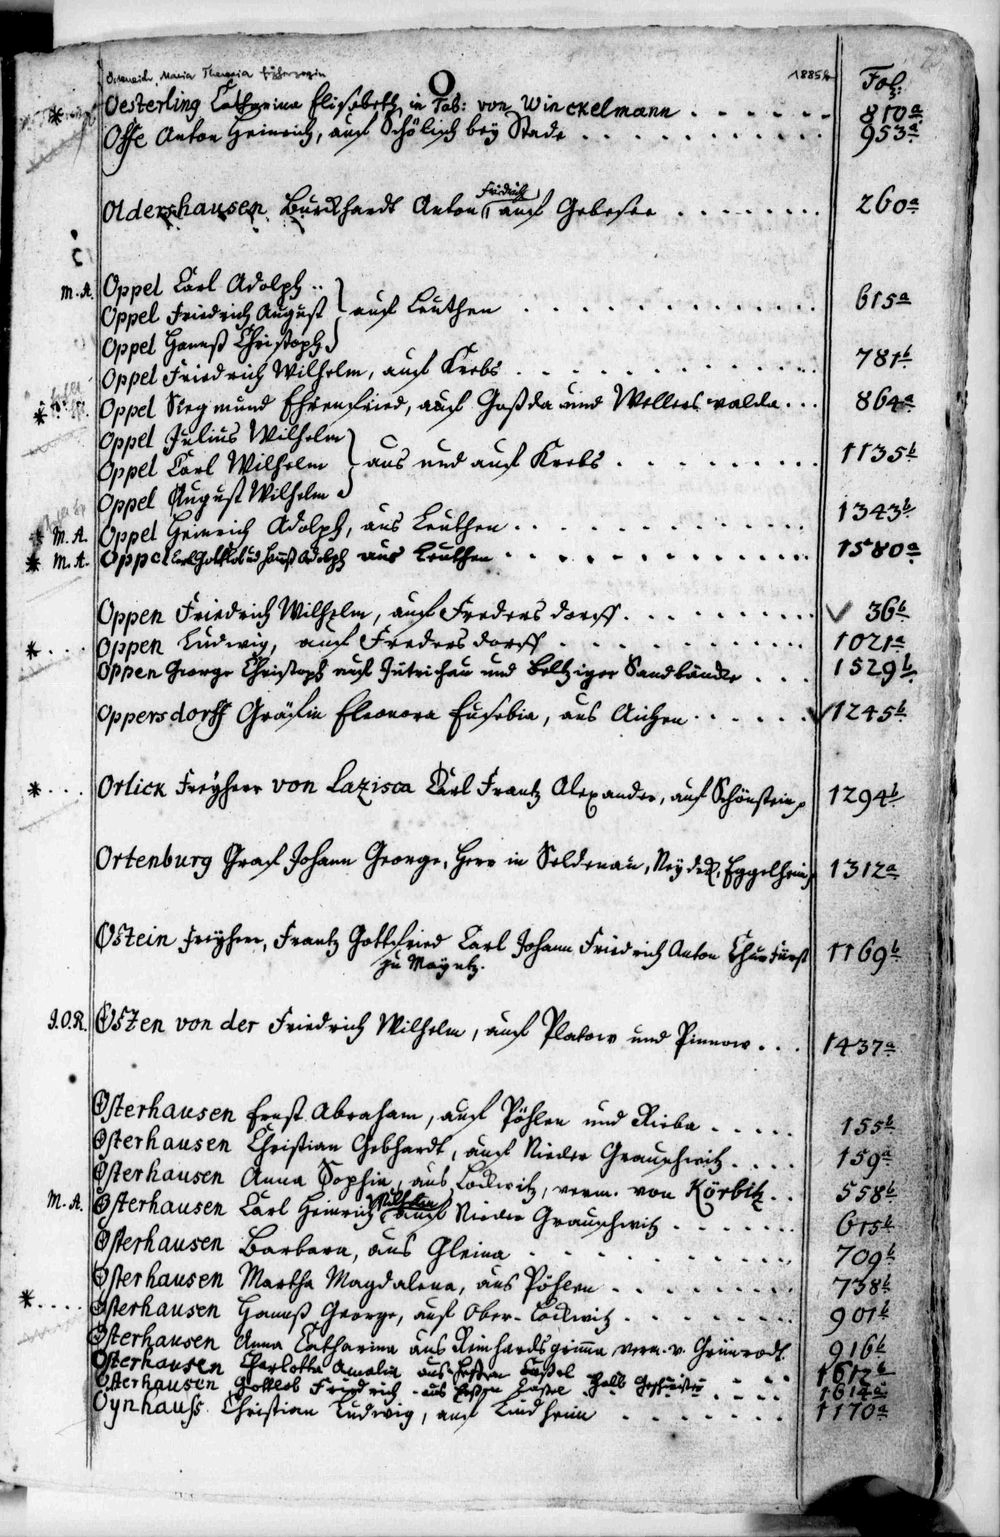 Maria Theresia Ertzherzogin 1885b
O
Fol:
Oesterling Catharina Elisabeth in Tab: von Winckelmann 810a
Offe Anton Heinrich, auf Schölisch bey Stade 953a
Friedrich
Oldershausen Burckhardt Anton auf Gebesee 260a
M.A. Oppel Carl Adolph
Oppel Friedrich August } auf Leuthen 615a
Oppel Hannß Christoph
Oppel Friedrich Wilhelm, auf Krebs 781b
* Oppel Siegmund Ehrenfried, auf Goßda und Wellerswalda 864a
Oppel Julius Wilhelm
Oppel Carl Wilhelm } aus und auf Krebs 1135b
Oppel August Wilhelm
* M.A. Oppel Heinrich Adolph, aus Leuthen 1343b
* M.A. Oppel Carl Gottlob und Hannß Adolph aus Leuthen 1580a
Oppen Friedrich Wilhelm, auf Fredersdorff ✓ 36b
* Oppen Ludwig, auf Fredersdorff 1021a
Oppen George Christoph auf Jütrichau und Beltziger Sandbändte 1529b
Oppersdorff Gräffin Eleonora Eusebia, aus Aichen ✓ 1245b
* Orlick Freyherr von Lazisca Carl Frantz Alexander, auf Schönstein 1294b
Ortenburg Graf Johann George, Herr in Seldenau, Neydeck, Eggelheim 1312a
Ostein Freyherr, Frantz Gottfried Carl Johann Friedrich Anton Churfürst 1169b
zu Mayntz.
J.O.R. Osten von der Friedrich Wilhelm, auf Platow und Pinnow 1437a
Osterhausen Ernst Abraham, auf Pöhlen und Rieba 155b
Osterhausen Christian Gebhardt, auf Nieder Grauschwitz 159a
Osterhausen Anna Sophia, aus Lockwitz, verm. von Körbitz 558b
Wilhelm
M.A. Osterhausen Carl Heinrich auf Nieder Grauschwitz 615b
Osterhausen Barbara, aus Gleina 709b
Osterhausen Martha Magdalena, aus Pöhlen 738b
* Osterhausen Hannß George, auf Ober-Lockwitz 901b
Osterhausen Anna Catharina aus Reinhardsgrimma verm. v. Grünrodt. 916b
Osterhausen Charlotta Amalia aus Heßen Caßel 1612b
Osterhausen Gottlob Friedrich aus Heßen Caßel Halb Geschwister 1614a
Oynhauß Christian Ludwig, auf Lindheim 1170a